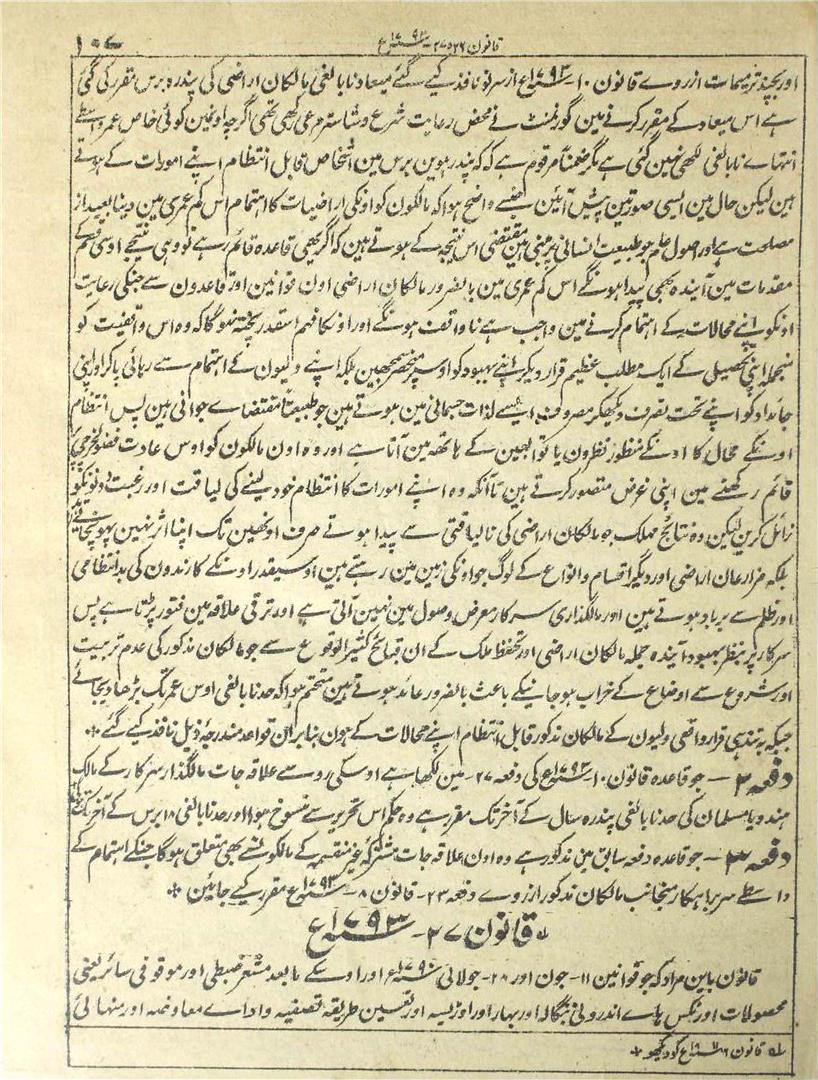 قانون ۲۶ و ۲۷ - ۱۷۹۳ع
اور بچند ترمیمات ازروے قانون ۱۰-۱۷۹۳ع ازسرنو نافذ کیے گئے میعاد نابالغی مالکان اراضی کی پندرہ برس مقرر کی گئی
ہے اس میعاد کے مقرر کرنے مین گورنمنٹ نے محض رعایت شرع و شاستر مرعی رکھی تھی اگرچہ اونمین کوئی خاص عمر واسطے
انتہاے نابالغی لکھی نہین گئی ہے مگر ضمناً مرقوم ہے کہ پندرہوین برس مین اشخاص قابل انتظام اپنے امورات کے ہوتے
ہین لیکن حال مین ایسی صورتین پیش آئین جنسے واضح ہوا کہ مالکون کو اونکی اراضیات کا اہتمام اس کم عمری مین دینا بعید از
مصلحت ہے اور اصول عام جو طبیعت انسانی پر مبنی ہین مقتضی اس نتیجہ کے ہوتے ہین کہ اگر یہی قاعدہ قائم رہے تو وہی نتیجے اوسی قسم کے
مقدمات مین آیندہ بھی پیدا ہونگے اس کم عمری مین بالضرور مالکان اراضی اون قوانین اور قاعدون سے جنکی رعایت
اونکو اپنے محالات کے اہتمام کرنے مین واجب ہے ناواقف ہونگے اور اونکا فہم اسقدر پختہ نہوگا کہ وہ اس واقفیت کو
منجملہ اپنی تحصیل کے ایک مطلب عظیم قرار دیکر اپنے بہبود کو اوسپر منحصر سمجھین بلکہ اپنے ولیون کے اہتمام سے رہائی پاکر اور اپنی
جائداد کو اپنے تحت تصرف دیکھکر مصروف ایسے لذات جسمانی مین ہوتے ہین جو طبیعتاً مقتضاے جوانی ہین پس انتظام
اونکے محال کا اونکے منظور نظرون یا توابعین کے ہاتھہ مین آتا ہے اور وہ اون مالکون کو اوس عادت فضول خرچی پر
قائم رکھنے مین اپنی غرض متصور کرتے ہین تاآنکہ وہ اپنے امورات کا انتظام خود لینے کی لیاقت اور رغبت دونونکو
زائل کرین لیکن وہ نتائج مہلک جو مالکان اراضی کی نالیاقتی سے پیدا ہوتے صرف اونھین تک اپنا اثر نہین پہونچاتے
بلکہ مزارعان اراضی اور دیگر اقسام و انواع کے لوگ جو اونکی زمین مین رہتے ہین اوسیقدر اونکے کارندون کی بدانتظامی
اور ظلم سے برباد ہوتے ہین اور مالگذاری سرکار معرض وصول مین نہین آتی ہے اور ترقی علاقہ مین فتور پڑتا ہے پس
سرکار پر بنظر بہبود آیندہ جملہ مالکان اراضی اور تحفظ ملک کے ان قبائح کثیر الوقوع سے جو مالکان مذکور کی عدم تربیت
اور شروع سے اوضاع کے خراب ہو جانیکے باعث بالضرور عائد ہوتے ہین متحتم ہوا کہ حد نابالغی اوس عمر تک بڑھا دیجائے
جبکہ بہ تندہی قرار واقعی ولیون کے مالکان مذکور قابل انتظام اپنے محالات کے ہون بنابران قواعد مندرجہ ذیل نافذ کیے گئے *
دفعہ ۲ - جو قاعدہ قانون ۱۰-۱۷۹۳ع کی دفعہ ۲۷- مین لکھا ہے اوسکی رو سے علاقہ جات مالگذار سرکار کے مالک
ہندو یا مسلمان کی حد نابالغی پندرہ سال کے آخر تک مقرر ہے وہ حکم اس تحریر سے منسوخ ہوا اور حد نابالغی ۱۸ برس کے آخر تک
دفعہ ۳ - جو قاعدہ دفعہ سابق مین مذکور ہے وہ اون علاقہ جات مشترکہ غیر منقسمہ کے مالکونسے بھی متعلق ہوگا جنکے اہتمام کے
واسطے سربراہکار منجانب مالکان مذکور ازروے دفعہ ۲۳- قانون ۸-۱۷۹۳ع مقرر کیے جائین *
قانون ۲۷-۱۷۹۳ع
قانون باین مراد کہ جو قوانین ۱۱- جون اور ۲۸- جولائی ۱۷۹۰ع اور اوسکے مابعد مشعر ضبطی اور موقوفی سائر یعنی
محصولات اور ٹکس ہاے اندرونی بنگالہ اور بہار اور اوڑیسہ اور تعیین طریقہ تصفیہ و اداے معاوضہ اور منہائی
قانون ع کو دیکھو *